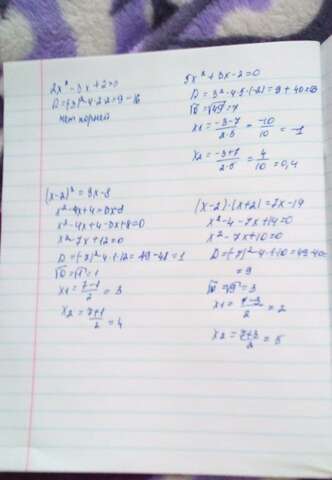 2x² - 3x + 2 = 0
D = (-3)² - 4·2·2 = 9 - 16
нет корней
5x² + 3x - 2 = 0
D = 3² - 4·5·(-2) = 9 + 40 =
√D = √49 = 7
x1 = -3-7/2·5 = -10/10 = -1
x2 = -3+7/2·5 = 4/10 = 0,4
(x-2)² = 3x-8
x² - 4x + 4 = 3x-8
x² - 4x + 4 - 3x + 8 = 0
x² - 7x + 12 = 0
D = (-7)² - 4·1·12 = 49 - 48 = 1
√D = √1 = 1
x1 = 7-1/2 = 3
x2 = 7+1/2 = 4
(x-2)·(x+2) = 7x-14
x² - 4 - 7x + 14 = 0
x² - 7x + 10 = 0
D = (-7)² - 4·1·10 = 49-40
= 9
√D = √9 = 3
x1 = 7-3/2 = 2
x2 = 7+3/2 = 5